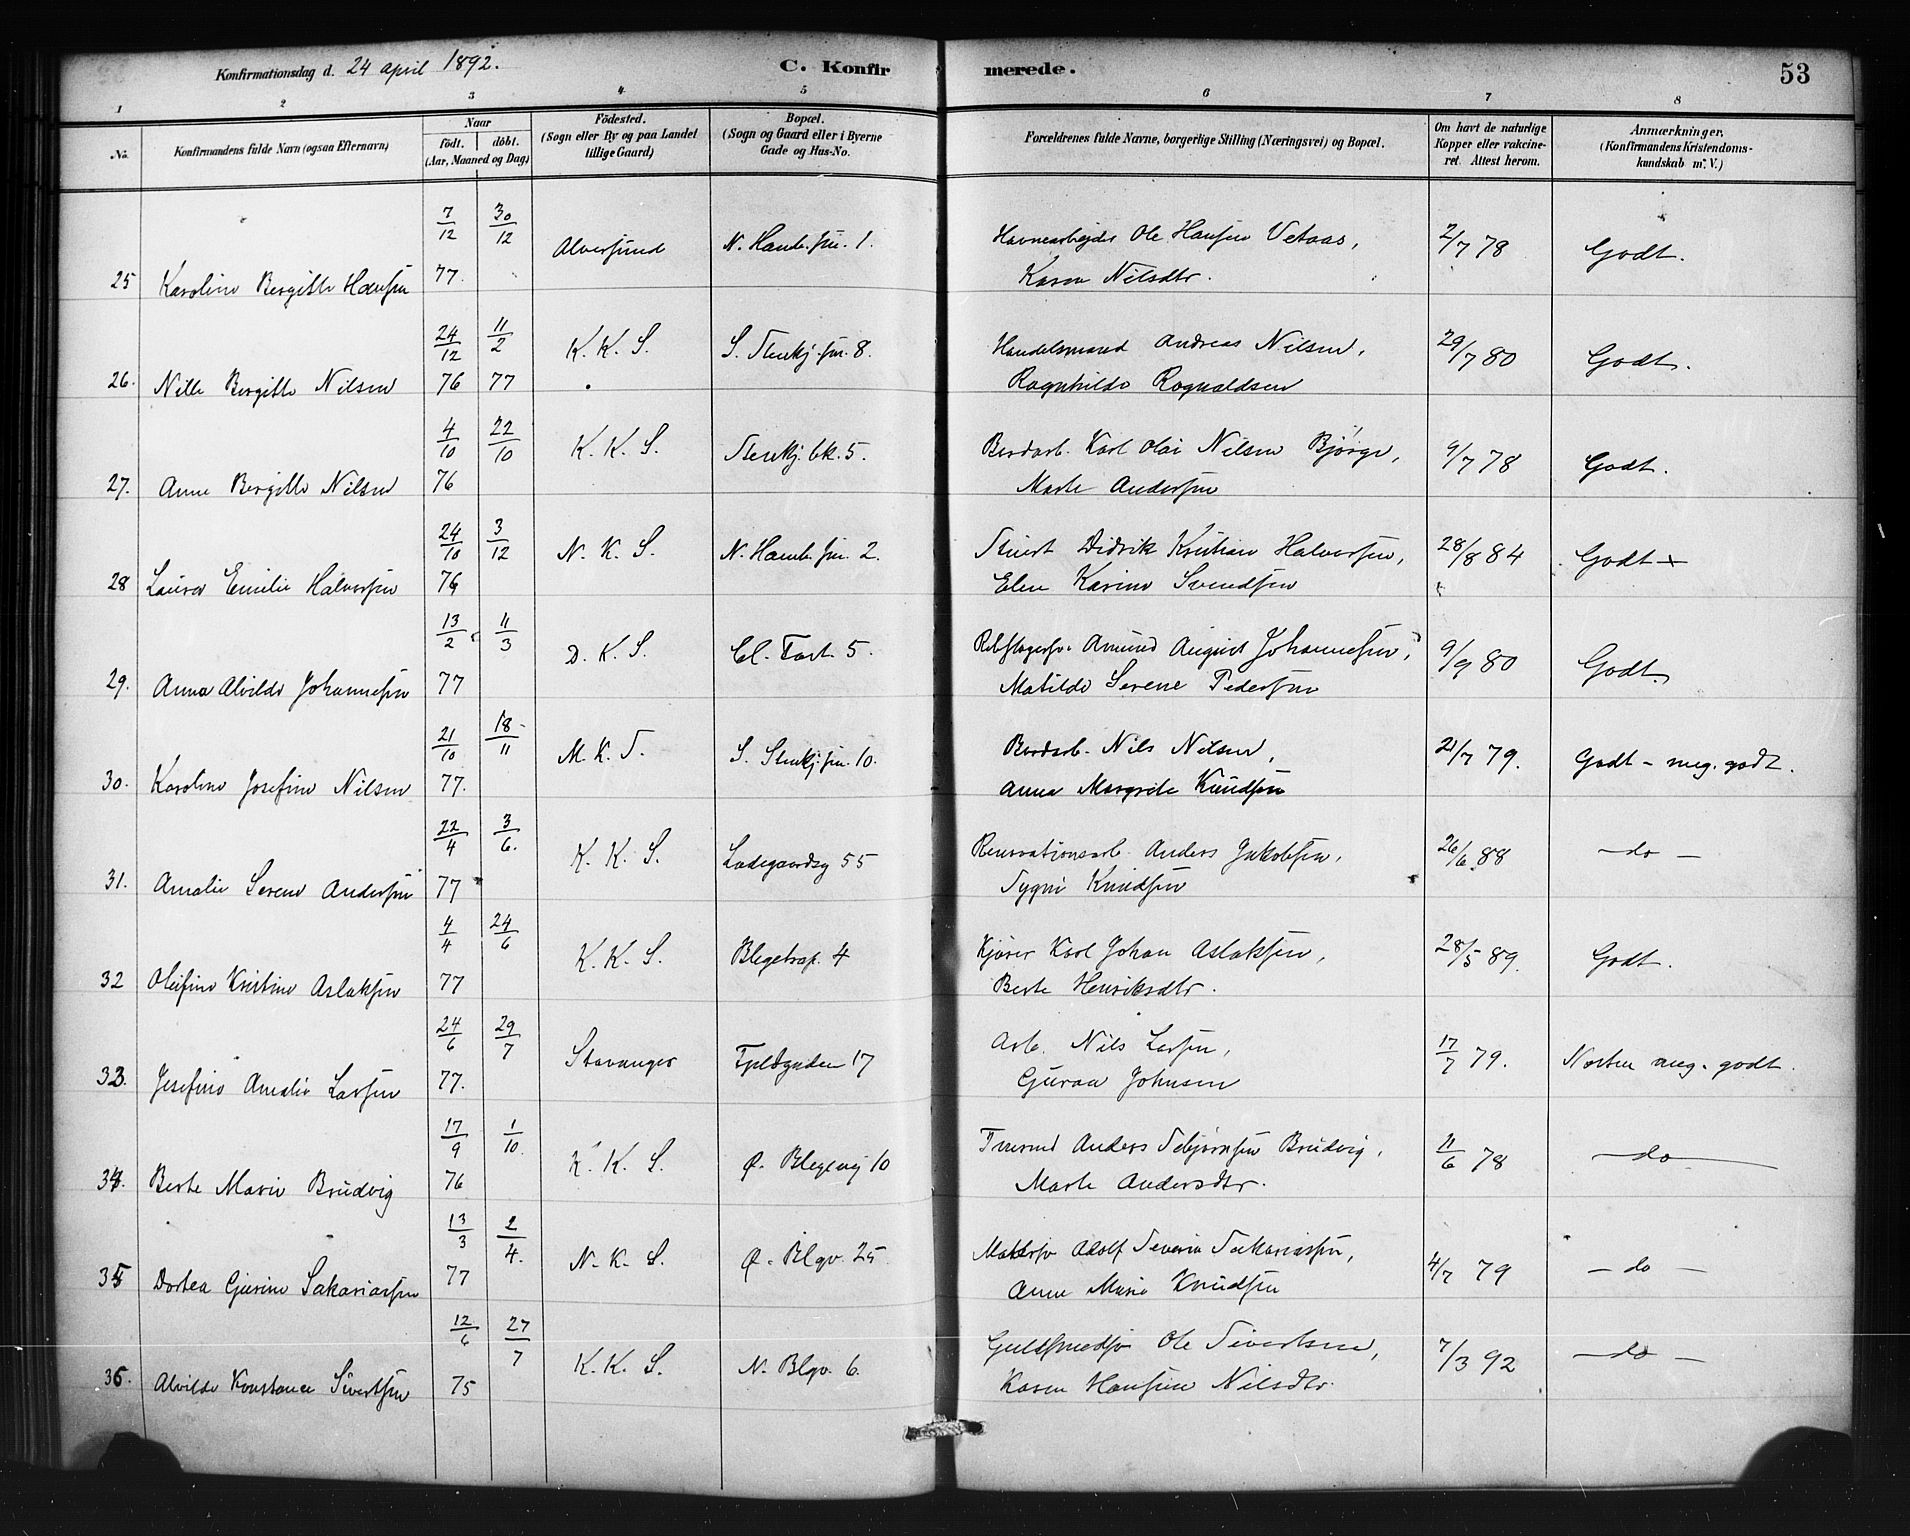 Konfirmationsdag d. 24 april 1892. C. Konfirmerede. 53
1 2 3 4 5 6 7 8
No. Konfirmandens fulde Navn (ogsaa Efternavn) Naar födt. döbt. (Aar, Maaned og Dag) Födested. (Sogn eller By og paa Landet tillige Gaard) Bopæl. (Sogn og Gaard eller i Byerne Gade og Hus-No. Forældrenes fulde Navne, borgerlige Stilling (Næringsvei) og Bopæl. Om havt de naturlige Kopper eller vakcineret. Attest herom. Anmærkninger. (Konfirmandens Kristendomskundskab m. V.)
7/12 30/12 Alversund N. Hamb. sm. 1. Havnearbejder Ole Hansen Vetaas, 2/7 78 Godt.
25 Karoline Bergitte Hansen 77. Karen Nilsdtr.
24/12 11/2 K. K. S. S. Stenkj. sm. 8. Handelsmand Andreas Nilsen, 29/7 80 Godt.
26. Nille Bergitte Nilsen 76 77 Ragnhilde Rognaldsen
4/10 22/10 K. K. S. Stenkj. bk. 5. Bordarb. Karl Olai Nilsen Bjørge, 9/7 78 Godt.
27. Anne Bergitte Nilsen 76 Marte Andersen
24/10 3/12 N. K. S. N. Hamb. sm. 2. Stuert Didrik Kristian Halvorsen, 28/8 84 Godt
28 Laura Emilie Halvorsen 76 Elen Karine Svendsen
13/2 11/3 D. K. S. Cl. Fort. 5. Rebslagersv. Amund August Johannesen, 9/9 80 Godt.
29. Anna Alvilde Johannesen 77 Matilde Serene Pedersen
21/10 18/11 M. K. S. S. Stenkj. sm. 10. Bordarb. Nils Nilsen, 21/7 79. Godt - meg. godt.
30. Karoline Josefine Nilsen 77. Anna Margrete Knudsen
22/4 3/6. K. K. S. Ladegaardsg 55 Renovationsarb. Anders Jakobsen, 26/6 88 - do -
31. Amalie Serene Andersen 77 Sygni Knudsen
4/4 24/6 K. K. S. Blegetrap. 4 Kjører Karl Johan Aslaksen, 28/5 89. Godt.
32 Olefine Kristine Aslaksen 77 Berte Henriksdtr.
24/6 29/7 Stavanger Fjeldgaden 17 Arb. Nils Larsen, 17/7 79. Næsten meg. godt.
33. Josefine Amalie Larsen 77. Guroa Johnsen
17/9 1/10. K. K. S. Ø. Blegevej 10 Anders Tebjørnsen Brudvig, 11/6 78 - do -
34. Berte Marie Brudvig 76 Marte Andersdtr.
13/3 2/4. N. K. S. Ø. Blgv. 25. Adolf Severin Sakariassen, 4/7 79 - do -
35 Dortea Gurine Sakariassen 77 Anne Marie Knudsen
12/6 27/7 K. K. S. N. Blgv. 6. Guldsmedsv. Ole Sivertsen, 7/3 92 - do -
36. Alvilde Konstance Sivertsen 75 Karen Hansine Nilsdtr.